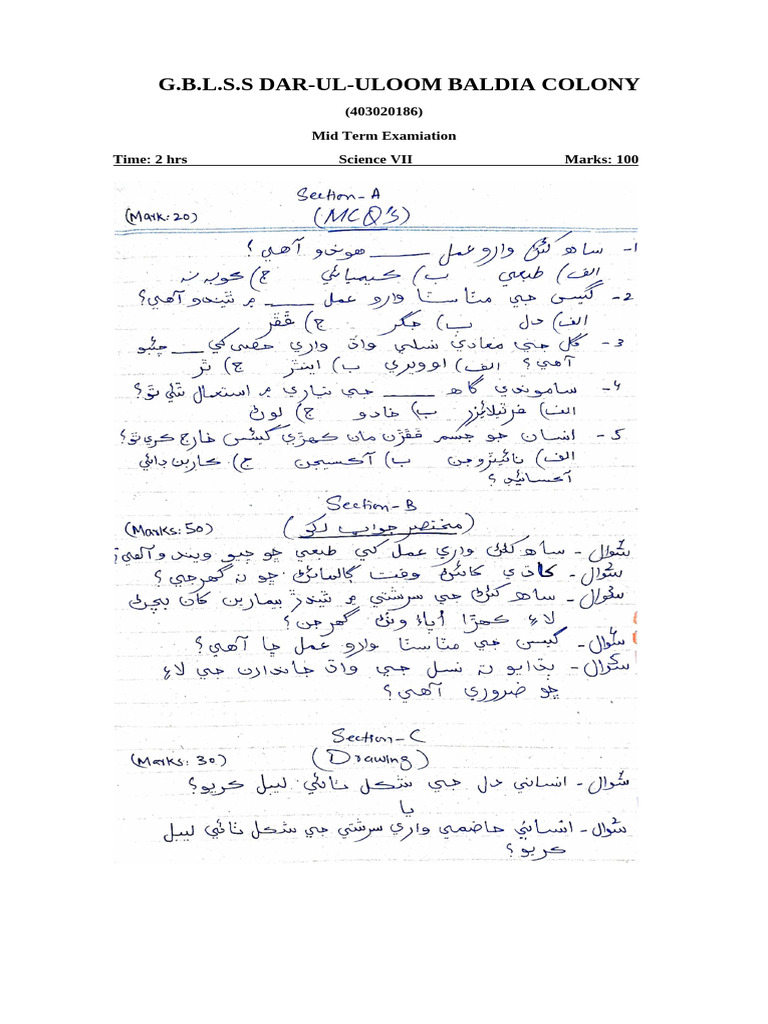 G.B.L.S.S DAR-UL-ULOOM BALDIA COLONY
(403020186)
Mid Term Examiation
Time: 2 hrs Science VII Marks: 100
Section-A
(Mark:20) (MCQ's)
1- ساھ کڻڻ وارو عمل ____ هوندو آهي؟
الف) طبعي ب) ڪيميائي ج) ڪوبه نه
2- گيسن جي مٽاسٽا وارو عمل ____ ۾ ٿيندو آهي؟
الف) دل ب) جگر ج) ڦڦڙ
3- گل جي مادي نسلي واڌ واري حصي کي ___ چئبو
آهي؟ الف) اووري ب) اينٿر ج) نر
4- سامونڊي گاھ ____ جي تياري ۾ استعمال ٿئي ٿو؟
الف) فرٽيلائيزر ب) کاڌو ج) لوڻ
5- انسان جو جسم ڦڦڙن مان ڪهڙي گيس خارج ڪري ٿو؟
الف) نائيٽروجن ب) آڪسيجن ج) ڪاربن ڊاءِ
آڪسائيڊ؟
Section-B
(Marks:50) (مختصر جواب لکو)
سُوال - ساھ کڻڻ واري عمل کي طبعي ڇو چيو ويندو آهي؟
سُوال - کاڌي کائڻ وقت ڳالهائڻ ڇو نه گهرجي؟
سُوال - ساھ کڻڻ جي سرشتي ۾ ٿيندڙ بيمارين کان بچڻ
لاءِ ڪهڙا اُپاءَ وٺڻ گهرجن؟
سُوال - گيسن جي مٽاسٽا وارو عمل ڇا آهي؟
سُوال - ٻڌايو ته نسل جي واڌ جاندارن جي لاءِ
ڇو ضروري آهي؟
Section-C
(Marks: 30) (Drawing)
سُوال - انساني دل جي شڪل ٺاهي ليبل ڪريو؟
يا
سُوال - انساني هاضمي واري سرشتي جي شڪل ٺاهي ليبل
ڪريو؟